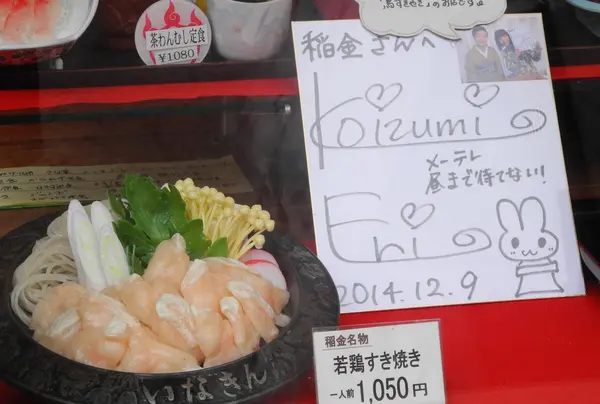 「鳥すきやき」のお店です
茶わんむし定食
¥1080
稲金さんへ
Koizumi
メ〜テレ
昼まで待てない!
Eri
2014.12.9
いなきん
稲金名物
若鶏すき焼き
一人前1,050円